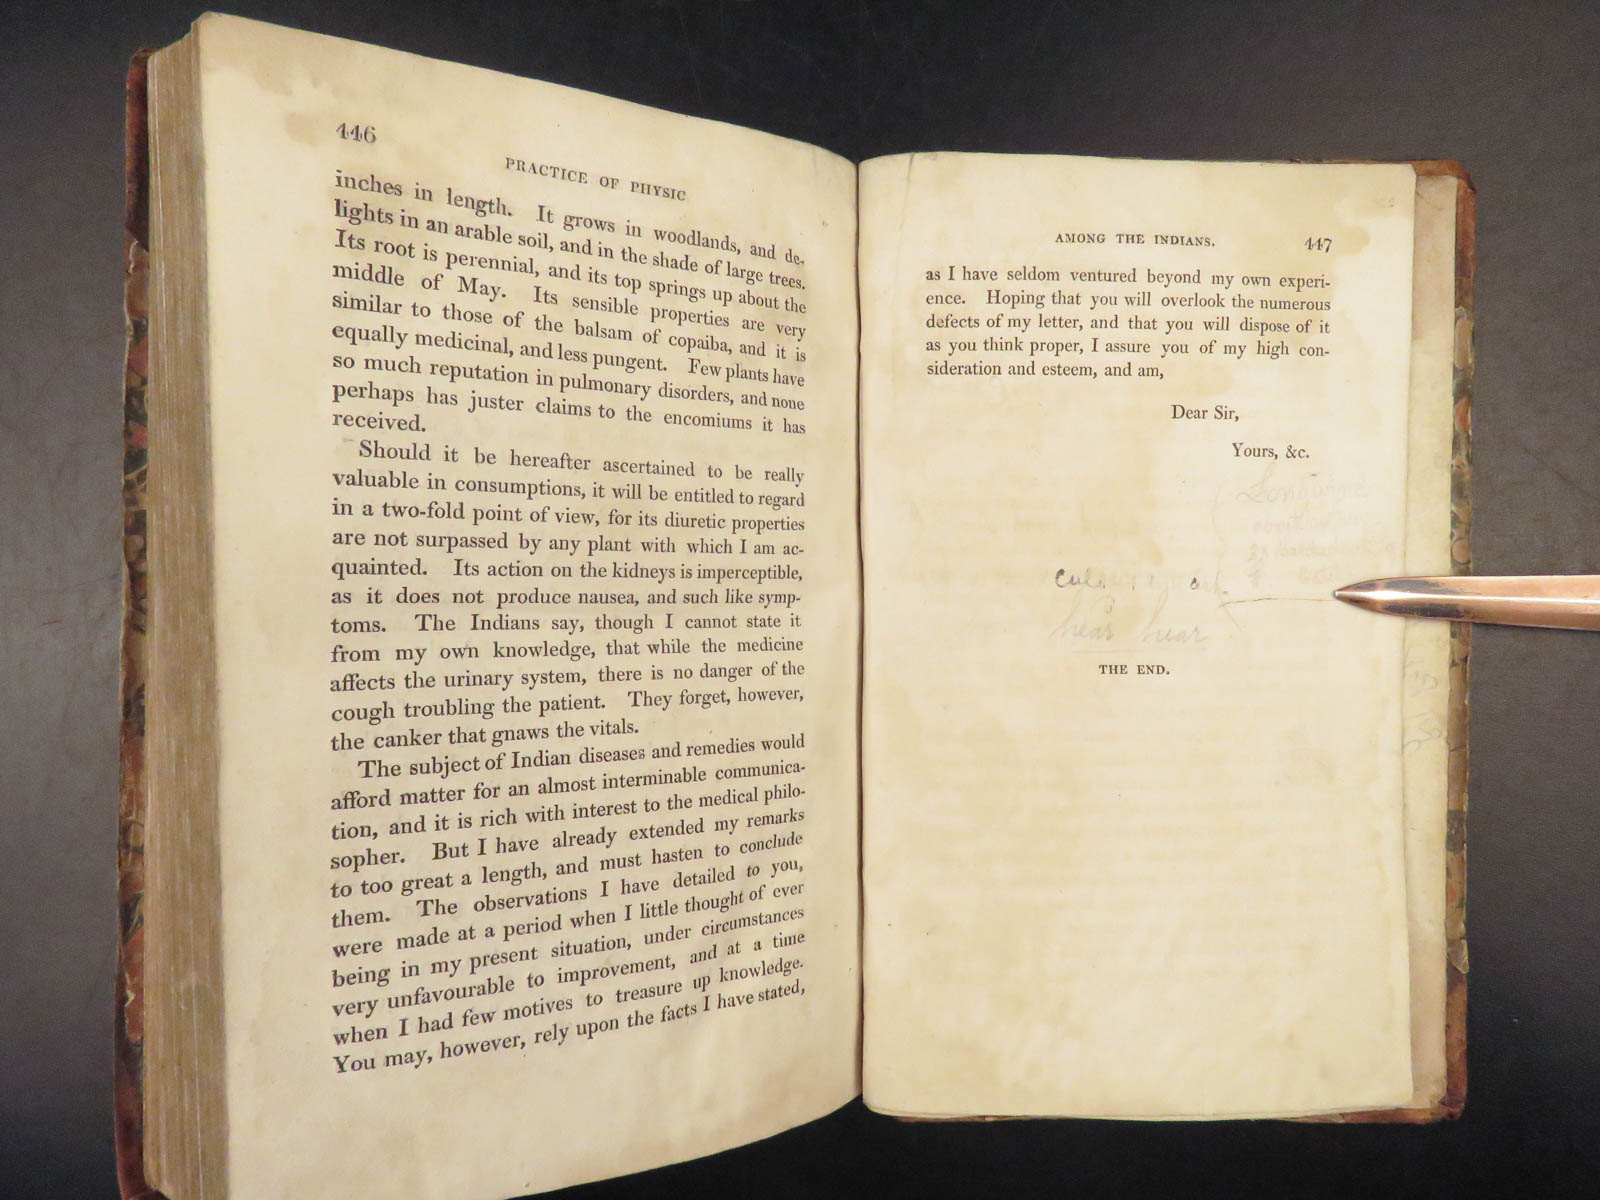 446
PRACTICE OF PHYSIC
inches in length. It grows in woodlands, and de-
lights in an arable soil, and in the shade of large trees.
Its root is perennial, and its top springs up about the
middle of May. Its sensible properties are very
similar to those of the balsam of copaiba, and it is
equally medicinal, and less pungent. Few plants have
so much reputation in pulmonary disorders, and none
perhaps has juster claims to the encomiums it has
received.
Should it be hereafter ascertained to be really
valuable in consumptions, it will be entitled to regard
in a two-fold point of view, for its diuretic properties
are not surpassed by any plant with which I am ac-
quainted. Its action on the kidneys is imperceptible,
as it does not produce nausea, and such like symp-
toms. The Indians say, though I cannot state it
from my own knowledge, that while the medicine
affects the urinary system, there is no danger of the
cough troubling the patient. They forget, however,
the canker that gnaws the vitals.
The subject of Indian diseases and remedies would
afford matter for an almost interminable communica-
tion, and it is rich with interest to the medical philo-
sopher. But I have already extended my remarks
to too great a length, and must hasten to conclude
them. The observations I have detailed to you,
were made at a period when I little thought of ever
being in my present situation, under circumstances
very unfavourable to improvement, and at a time
when I had few motives to treasure up knowledge.
You may, however, rely upon the facts I have stated,
AMONG THE INDIANS.
447
as I have seldom ventured beyond my own experi-
ence. Hoping that you will overlook the numerous
defects of my letter, and that you will dispose of it
as you think proper, I assure you of my high con-
sideration and esteem, and am,
Dear Sir,
Yours, &c.
hear hear
THE END.